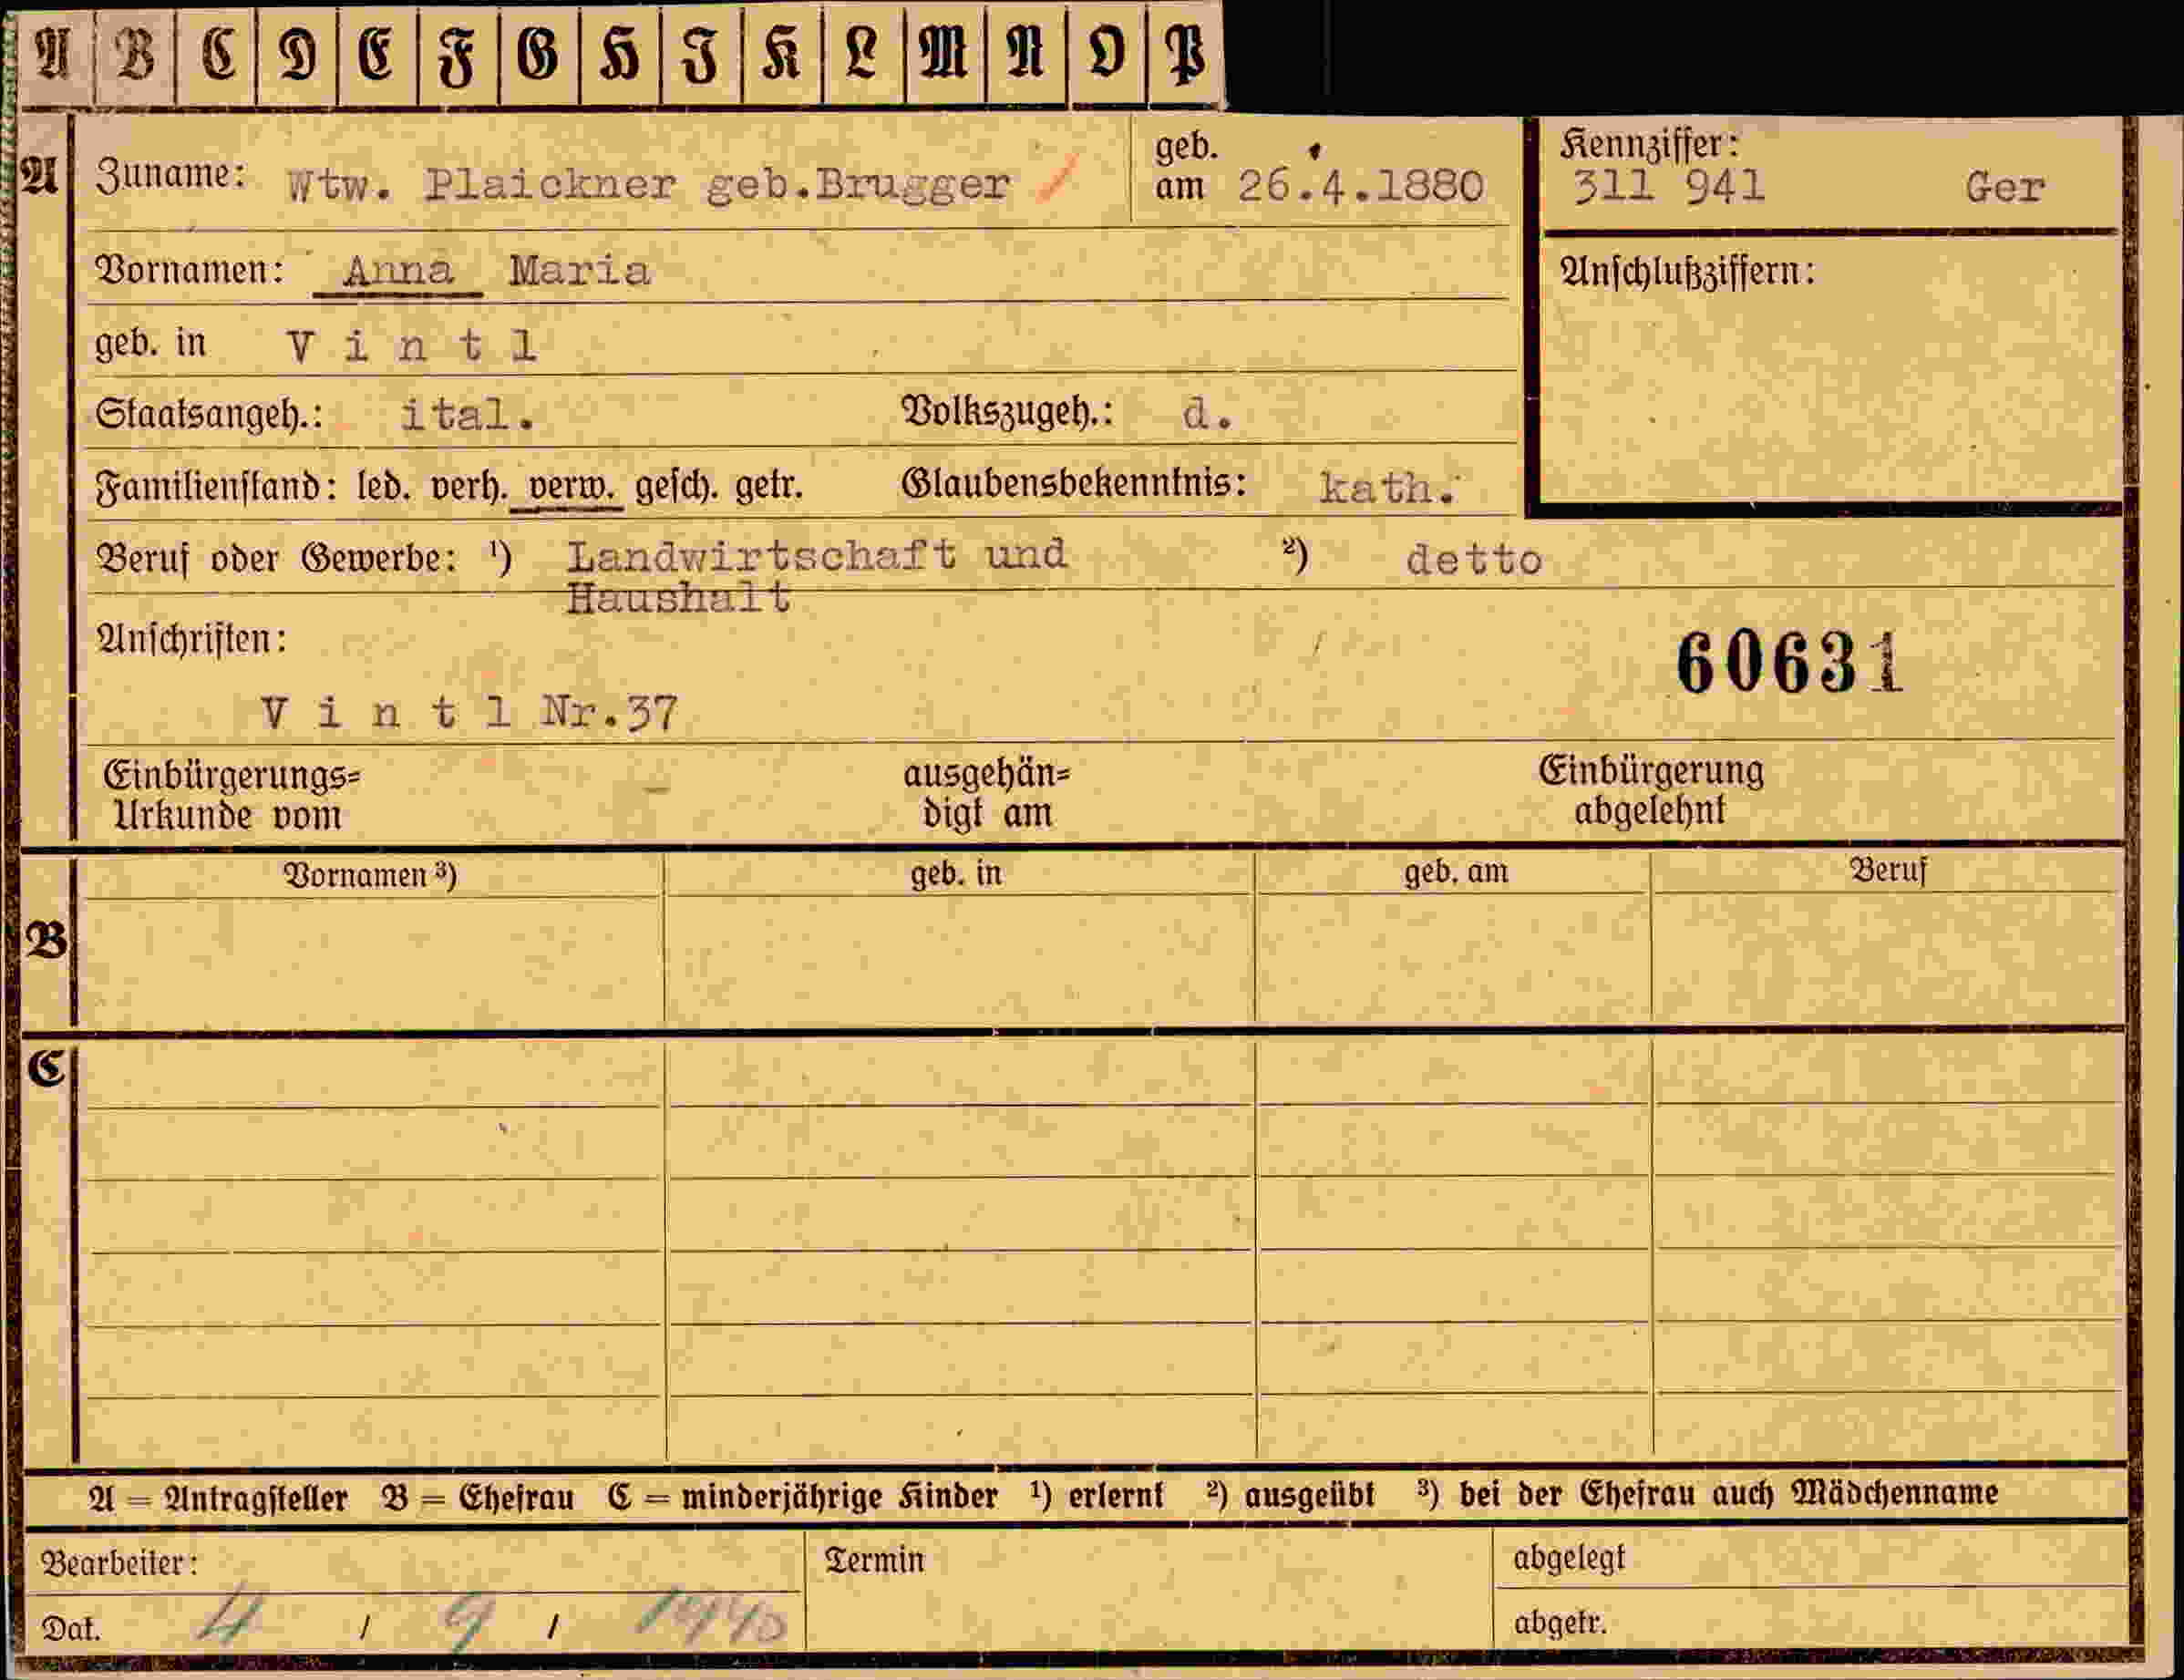 A B C D E F G H I K L M N O P
A Zuname: Wtw. Plaickner geb.Brugger geb. am 26.4.1880 Kennziffer: 311 941 Ger
Vornamen: Anna Maria Anschlußziffern:
geb. in V i n t l
Staatsangeh.: ital. Volkszugeh.: d.
Familienstand: led. verh. verw. gesch. getr. Glaubensbekenntnis: kath.
Beruf oder Gewerbe: ¹) Landwirtschaft und ²) detto
Haushalt
Anschriften: 60631
V i n t l Nr.37
Einbürgerungs= ausgehän= Einbürgerung
Urkunde vom digt am abgelehnt
Vornamen ³) geb. in geb. am Beruf
B
C
A = Antragsteller B = Ehefrau C = minderjährige Kinder ¹) erlernt ²) ausgeübt ³) bei der Ehefrau auch Mädchenname
Bearbeiter: Termin abgelegt
Dat. 4 / 9 / 1940 abgetr.